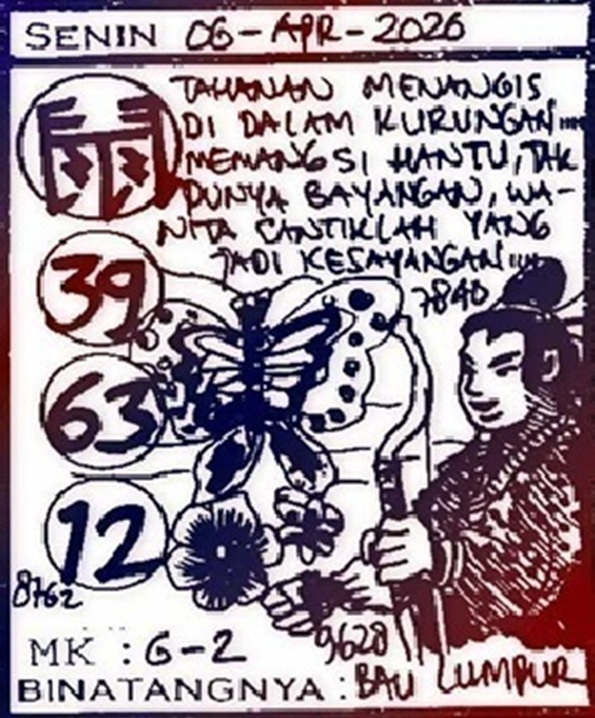 SENIN 06-APR-2026
TAHANAN MENANGIS
DI DALAM KURUNGAN
MEMANGSI HANTU, TAK
PUNYA BAYANGAN, WA-
NITA CANTIKLAH YANG
JADI KESAYANGAN
雨
39
63
12
7840
8762
9628
MK : 6-2
BINATANGNYA : BAU LUMPUR